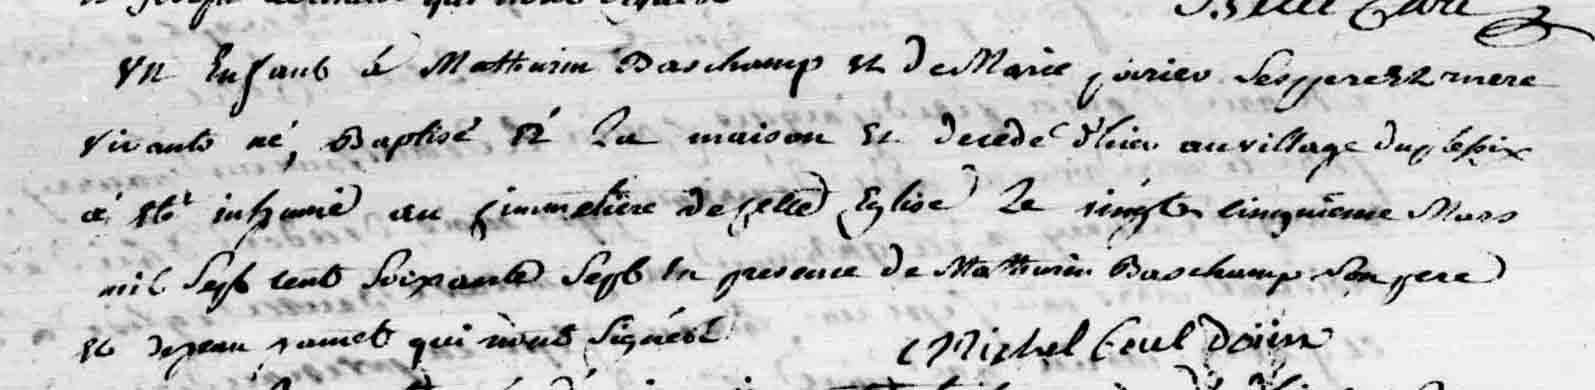 un Enfant á Mathurin Baschamp et de Marie poirier Ses pere et mere
vivants né, Baptisé á La maison et decedé d'hier au village du plessix
á eté inhumé au simmetiere de cette Eglise Le vingt cinquieme Mars
mil Sept cent Soixante Sept en presence de Mathurin Baschamp Son pere
et de jean jamet qui n'ont Signés
Michel Doüin